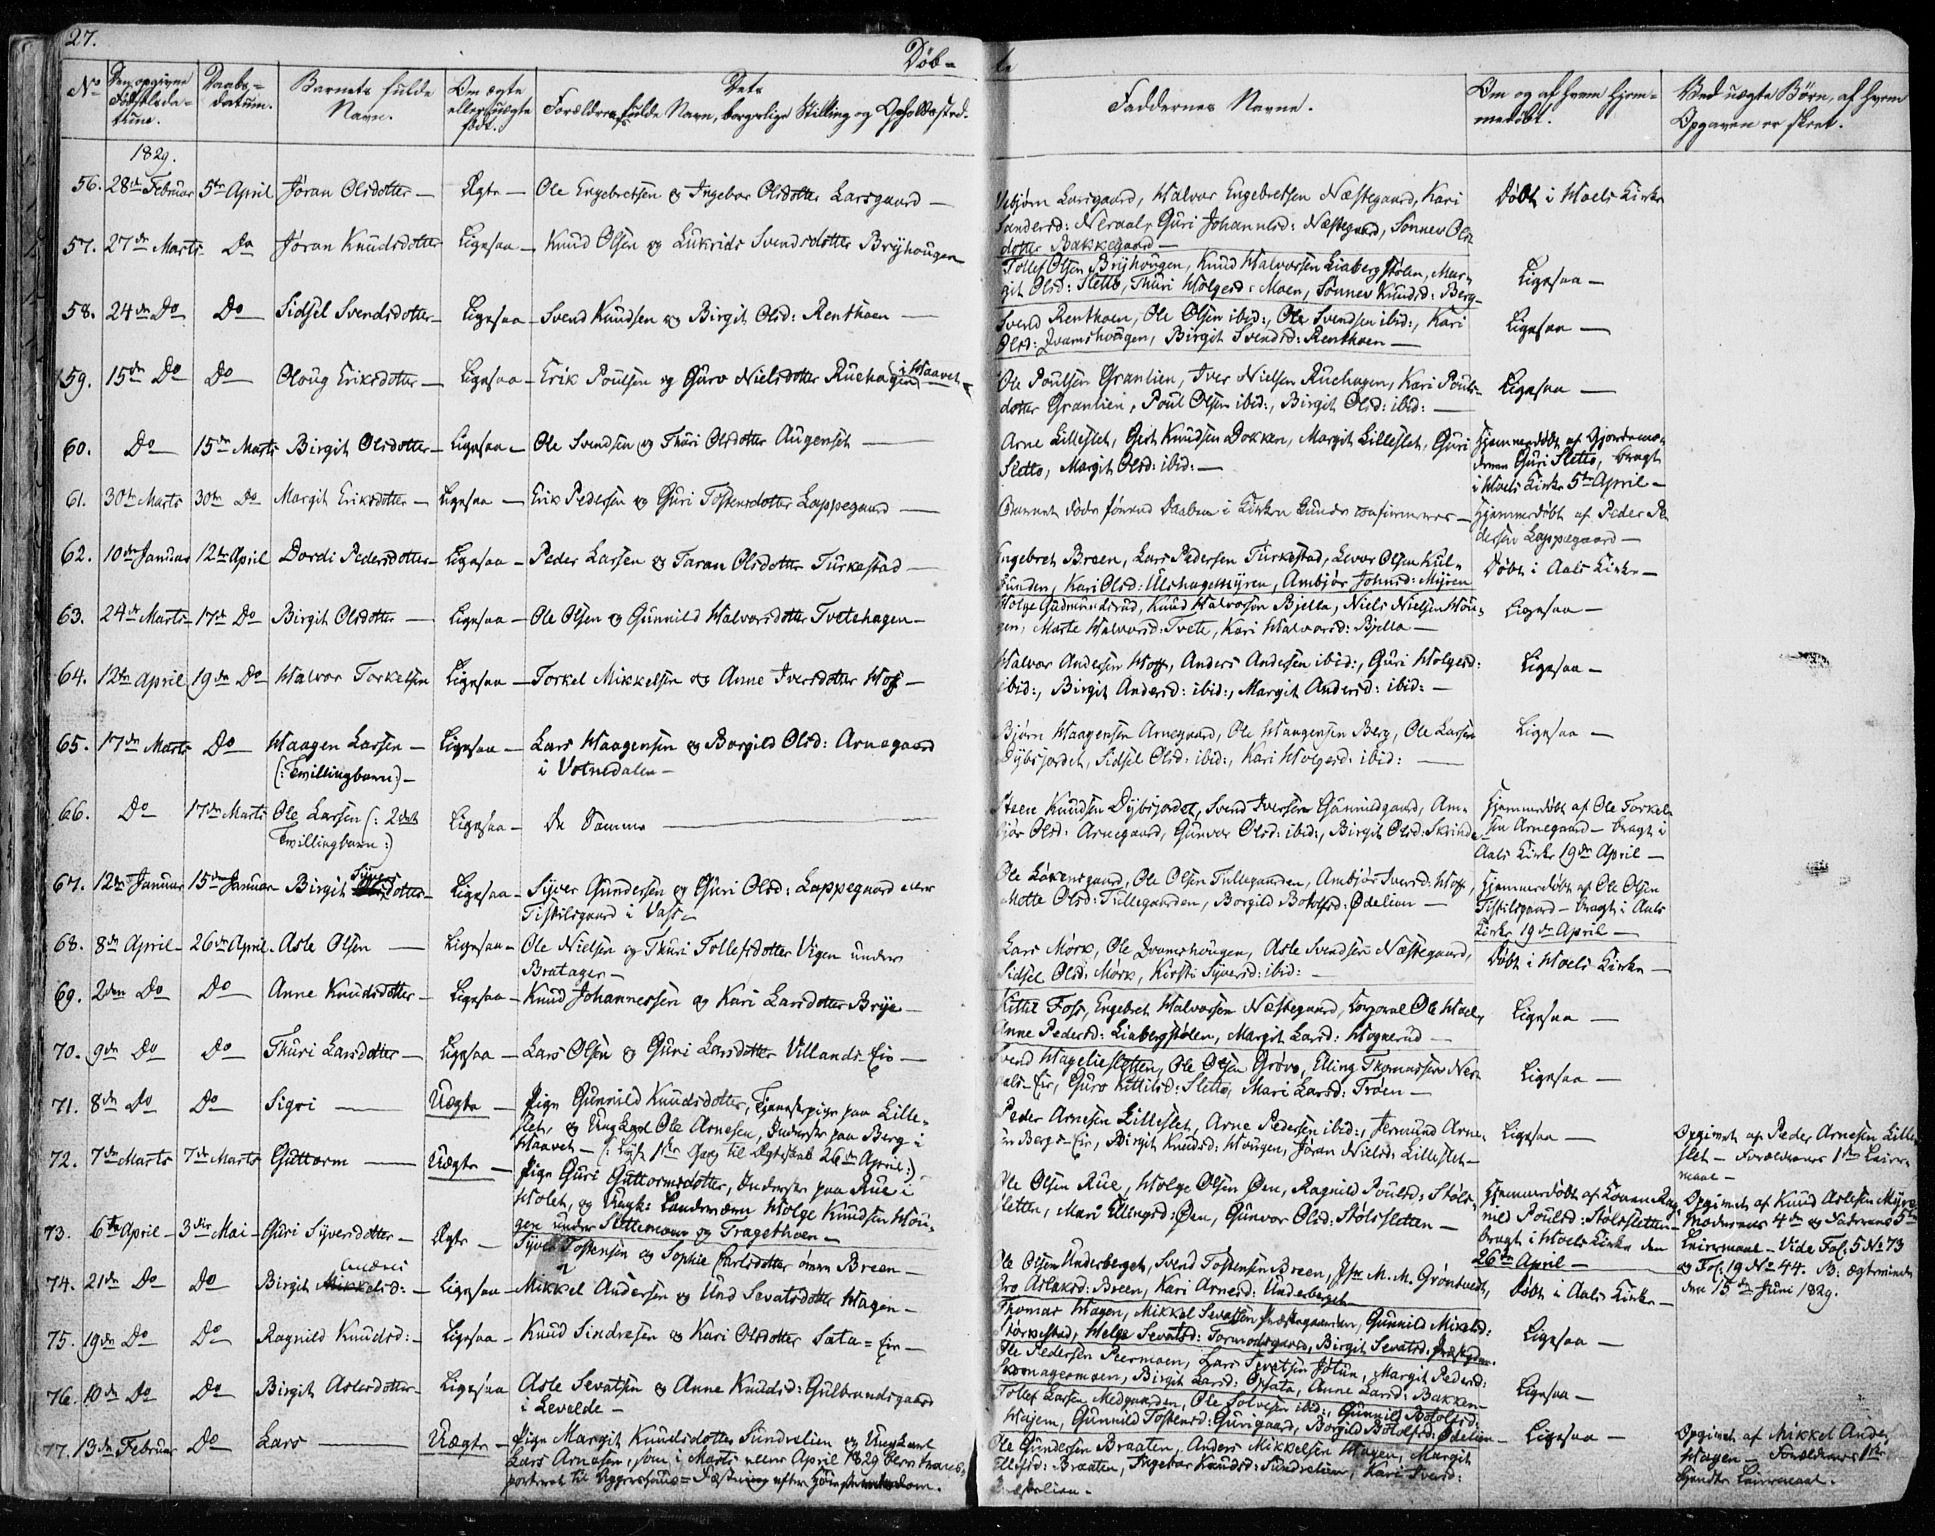 27.
Døb-
te
No
Den opgivne Fødselsda-tum.
Daabs-datum.
Barnets fulde Navn.
Om ægte eller uægte født.
Dets Forældres fulde Navn, borgerlige Stilling og Opholdssted.
Faddernes Navne.
Om og af hvem hjem-medøbt.
Ved uægte Børn, af hvem Opgaven er skeet.
1829.
56. 28de Februar 5te April Jøran Olsdotter — Ægte — Ole Engebretsen & Ingebor Olsdotter Larsgaard —
Larsgaard, Halvor Engebretsen Næstegaard, Kari
Neraal, Guri Johannesd: Næstegaard, Sønnev Ols-
dotter Bakkegaard —
Døbt i Hoels Kirke
57. 27de Marts Do Jøran Knudsdotter Ligesaa — Knud Olsen og Lukrids Svendsdotter Bryhougen
Tollef Olsen Bryhougen, Knud Halvorsen Liabergstølen, Mar-
git Olsd: Sletto, Thuri Holgersd: Moen, Sønnev Knudsd: Berg —
Ligesaa —
58. 24de Do Do Sidsel Svendsdotter — Ligesaa — Svend Knudsen og Birgit Olsd: Renthoen —
Svend Renthoen, Ole Olsen ibid:, Ole Svendsen ibid:, Kari
Olsd: Qvamshougen, Birgit Svendsd: Renthoen —
Ligesaa —
59. 15de Do Do Oloug Eriksdotter — Ligesaa — Erik Poulsen og Guro Nielsdotter Ruehagen i Haavet
Ole Poulsen Granlien, Iver Nielsen Ruehagen, Kari Pouls-
dotter Granlien, Poul Olsen ibid:, Birgit Olsd: ibid: —
Ligesaa —
60. Do 15de Marts Birgit Olsdotter — Ligesaa — Ole Svendsen og Thuri Olsdotter Augenset —
Arne Lilleslet, Gert Knudsen Dokken, Margit Lilleslet, Guri
Sletto, Margit Olsd: ibid: —
Hjemmedøbt af Gjordemo-
deren Guri Sletto, bragt
i Hoels Kirke 5te April —
61. 30te Marts 30te Do Margit Eriksdotter — Ligesaa — Erik Pedersen og Guri Tostensdotter Lappegaard —
Barnet døde førend Daaben i Kirken kunde confirmeres —
Hjemmedøbt af Peder Pe-
dersen Lappegaard —
62. 10de Januar 12te April Dordi Pedersdotter — Ligesaa — Peder Larsen og Taran Olsdotter Turkestad —
Engebret Breen, Lars Pedersen Turkestad, Levor Olsen Kul-
Kari Olsd: Ulshagelhyren, Ambjør Johnsd: Myren
Døbt i Aals Kirke —
63. 24de Marts 17de Do Birgit Olsdotter — Ligesaa — Ole Olsen og Gunnild Halvorsdotter Tvetehagen —
Holge Gudmundsrud, Knud Halvorsen Bjella, Niels Nielsen Hou-
gen, Marte Halvorsd: Tvete, Kari Halvorsd: Bjella —
Ligesaa —
64. 12te April 19de Do Halvor Torkelsen Ligesaa — Torkel Mikkelsen og Anne Iversdotter Hoff —
Halvor Andersen Hoff, Anders Andersen ibid:, Guri Holgersd:
ibid:, Birgit Andersd: ibid:, Margit Andersd: ibid: —
Ligesaa —
65. 17de Marts Do Haagen Larsen — Ligesaa — Lars Haagensen og Borgild Olsd: Arnegaard
(: Tvillingbarn:) —
i Votnedalen —
Bjørn Haagensen Arnegaard, Ole Haagensen Berg, Ole Larsen
Dybsjordet, Sidsel Olsd: ibid:, Kari Holgersd: ibid: —
Ligesaa —
66. Do 17de Marts Ole Larsen (: 2det Ligesaa — De Samme —
Tvillingbarn:)
Steen Knudsen Dybsjordet, Svend Iversen Gunnildgaard, Am-
bjør Olsd: Arnegaard, Gunvor Olsd: ibid:, Birgit Olsd: Skrinde
Hjemmedøbt af Ole Torkel-
sen Arnegaard — bragt i
Aals Kirke 19de April —
67. 12te Januar 15de Januar Birgit Syversdotter — Ligesaa — Syver Gundersen og Guri Olsd: Lappegaard eller
Tistilsgaard i Vats —
Ole Løkensgaard, Ole Olsen Tullegaarden, Ambjør Iversd: Hoff,
Mette Olsd: Tullegaarden, Borgild Botolfsd: Ødelien —
Hjemmedøbt af Ole Olsen
Tistilsgaard — bragt i Aals
Kirke 19de April —
68. 8de April — 26de April. Asle Olsen — Ligesaa — Ole Nielsen og Thuri Tollefsdotter Vigen under
Bratager —
Lars Mørk, Ole Qvamshougen, Asle Svendsen Næstegaard,
Sidsel Olsd: Mørk, Kirsti Syversd: ibid: —
Døbt i Hoels Kirke —
69. 2den Do Do Anne Knudsdotter — Ligesaa — Knud Johannessen og Kari Larsdotter Brye —
Kittil Foss, Engebret Halvorsen Næstegaard, Korporal Ole Hoel,
Anne Pedersd: Liabergstølen, Margit Larsd: Hognerud —
Ligesaa —
70. 9de Do Do Thuri Larsdotter — Ligesaa — Lars Olsen og Guri Larsdotter Villands-Eie —
Svend Hagelisletten, Ole Olsen Grøvo, Elling Thomassen Ner-
aals-Eie, Guro Kittilsd: Sletto, Mari Larsd: Trøen —
Ligesaa —
71. 8de Do Do Sigri — Uægte — Pige Gunnild Knudsdotter, Tjenestepige paa Lille-
slet, og Ungkarl Ole Arnesen, Inderst paa Berg i
Haavet — (: Lyst 1ste Gang til Ægteskab 26de April:) —
Peder Arnesen Lilleslet, Arne Pedersen ibid:, Jermund Arne-
sen Bergs-Eie, Birgit Knudsd: Hougen, Jøran Nielsd: Lilleslet —
Ligesaa —
Opgivet af Peder Arnesen Lille-
slet — Forældrenes 1ste Leier-
maal —
72. 7de Marts 7de Marts Guttorm — Uægte — Pige Guri Guttormsdotter, Inderst paa Rue i
Holet, og Ungk: Landeværn Holge Knudsen Hou-
gen under Settemoen og Tragethoen —
Ole Olsen Rue, Holge Olsen Øen, Ragnild Poulsd: Støls-
sletten, Mari Ellingsd: Øen, Gunvor Olsd: Stølssletten —
Hjemmedøbt af Konen Rag-
nild Poulsd: Stølssletten —
bragt i Hoels Kirke den
26de April —
Opgivet af Knud Aslesen Myre
Moderens 4de og Faderens 5te
Leiermaal — Vide Fol. 5 No 73
og Fol. 19 No 44. B: ægteviede
den 15de Juni 1829.
73. 6te April — 3die Mai — Guri Syversdotter — Ægte — Syver Tostensen og Sophie Carlsdotter Breen —
Ole Olsen Underberget, Svend Tostensen Breen, M. M. Grøntvedt,
Aslaksd: Breen, Kari Arnesd: Underberget
Døbt i Aals Kirke —
74. 21de Do Do Birgit Mikkelsd: — Ligesaa — Mikkel Andersen og Und Sevatsdotter Hagen —
Thomas Hagen, Mikkel Sevatsen Præstegaarden, Gunnild Mikelsd:
Størkestad, Helge Sevatsd: Tormodsgaard, Birgit Sevatsd: Præstgrd.
Ligesaa —
75. 19de Do Do Ragnild Knudsd: — Ligesaa — Knud Sindresen og Kari Olsdotter Sata-Eie —
Ole Pedersen Peermoen, Lars Sevatsen Jotun, Margit Pedersd:
Skomagermoen, Birgit Larsd: Opsata, Anne Larsd: Bakken
Ligesaa —
76. 10de Do Do Birgit Aslesdotter — Ligesaa — Asle Sevatsen & Anne Knudsd: Gulbrandsgaard
i Levelde —
Tollef Larsen Medgaarden, Ole Solvesen ibid:, Gunnild Botolfsd:
Hajem, Gunnild Tostensd: Gurigaard, Borgild Botolfsd: Ødelien —
Ligesaa —
77. 13de Februar Do Lars — Uægte — Pige Margit Knudsdotter Sundrelien og Ungkarl
Lars Arnesen, som i Marts eller April 1829 blev trans-
porteret til Aggershuus-Fæstning efter
Ole Gundersen Braaten, Anders Mikkelsen Hagen, Margit
Ellefsd: Braaten, Ingebor Knudsd: Sundrelien, Kari Iversd:
Opgivet af Mikkel Anders
Hagen — Forældrenes 1ste
Leiermaal.